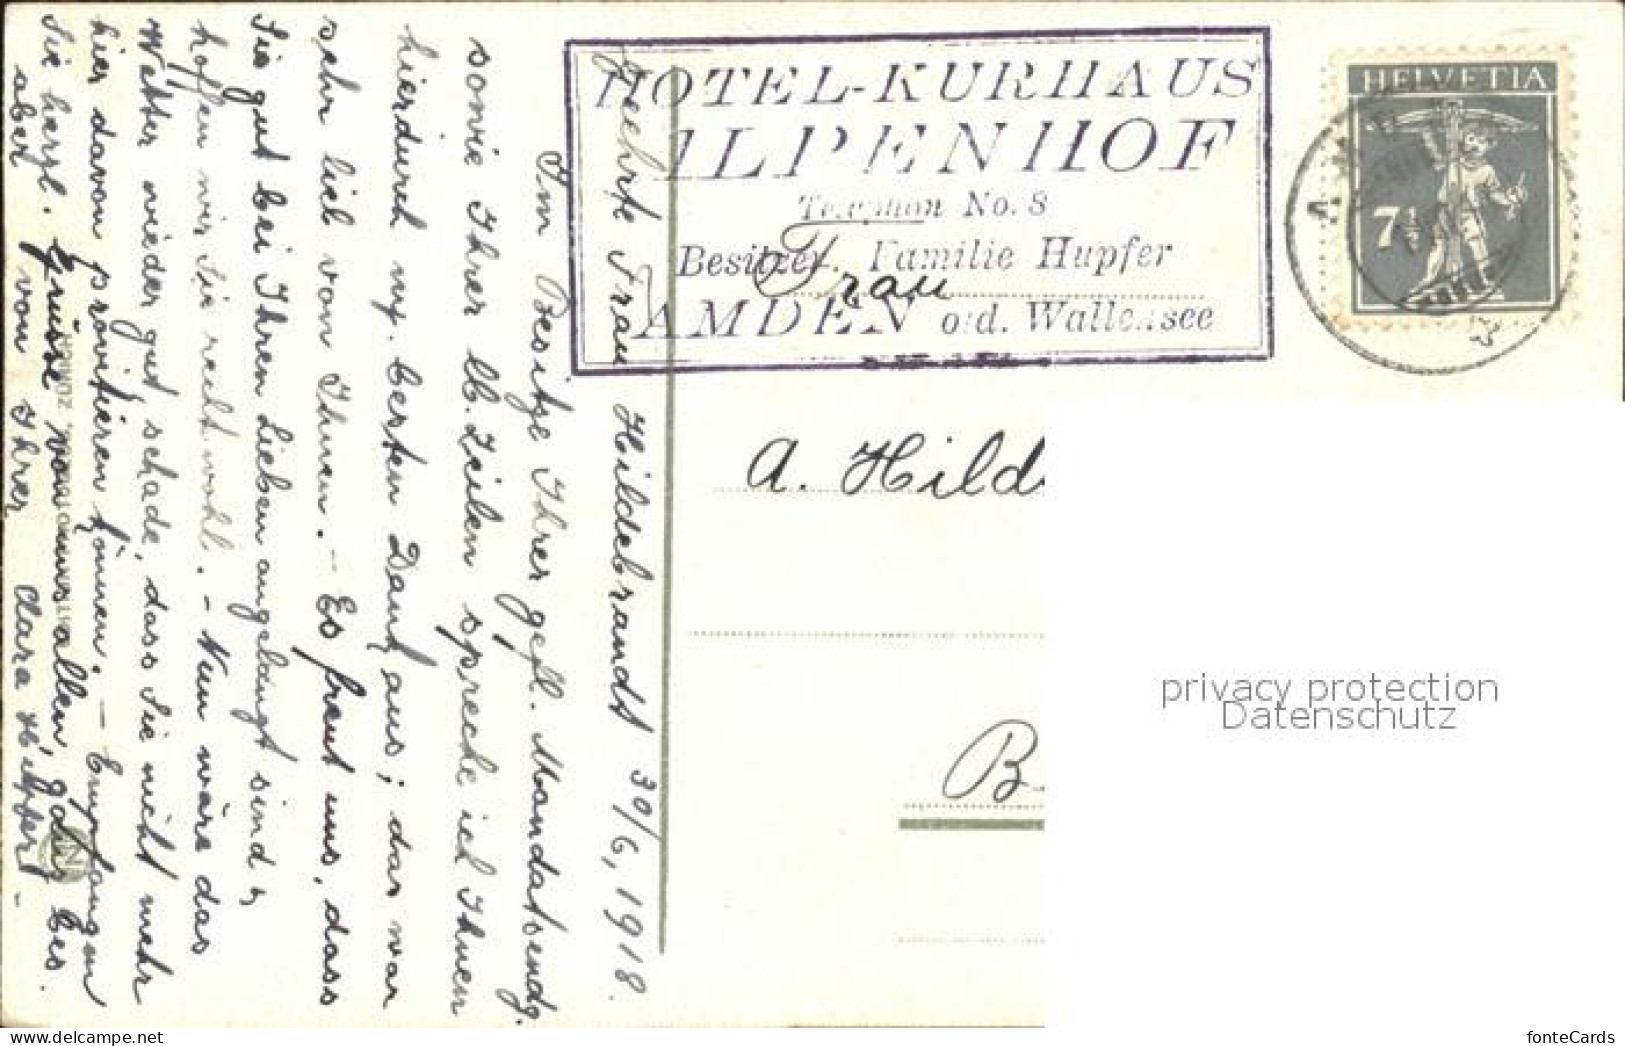 Geehrte Frau Hildebrandt 30/6, 1918.
Im Besitze Ihrer gefl. Mandatsendg.
sowie Ihrer lb. Zeilen spreche ich Ihnen
hierdurch my. besten Dank aus; das war
sehr lieb von Ihnen. – Es freut uns, dass
Sie gut bei Ihren Lieben angelangt sind &
hoffen wir Sie recht wohl. – Nun wäre das
Wetter wieder gut, schade, dass Sie nicht mehr
hier davon provitieren können. – Empfangen
Sie herzl. Grüsse von uns allen, ganz bes.
aber von Ihrer Clara Hupfer –
HOTEL-KURHAUS
ALPENHOF
Telephon No. 8
Besitzer. Familie Hupfer
AMDEN o/d. Wallensee
HELVETIA
7½
Frau
A. Hild
B
privacy protection
Datenschutz
fonteCards